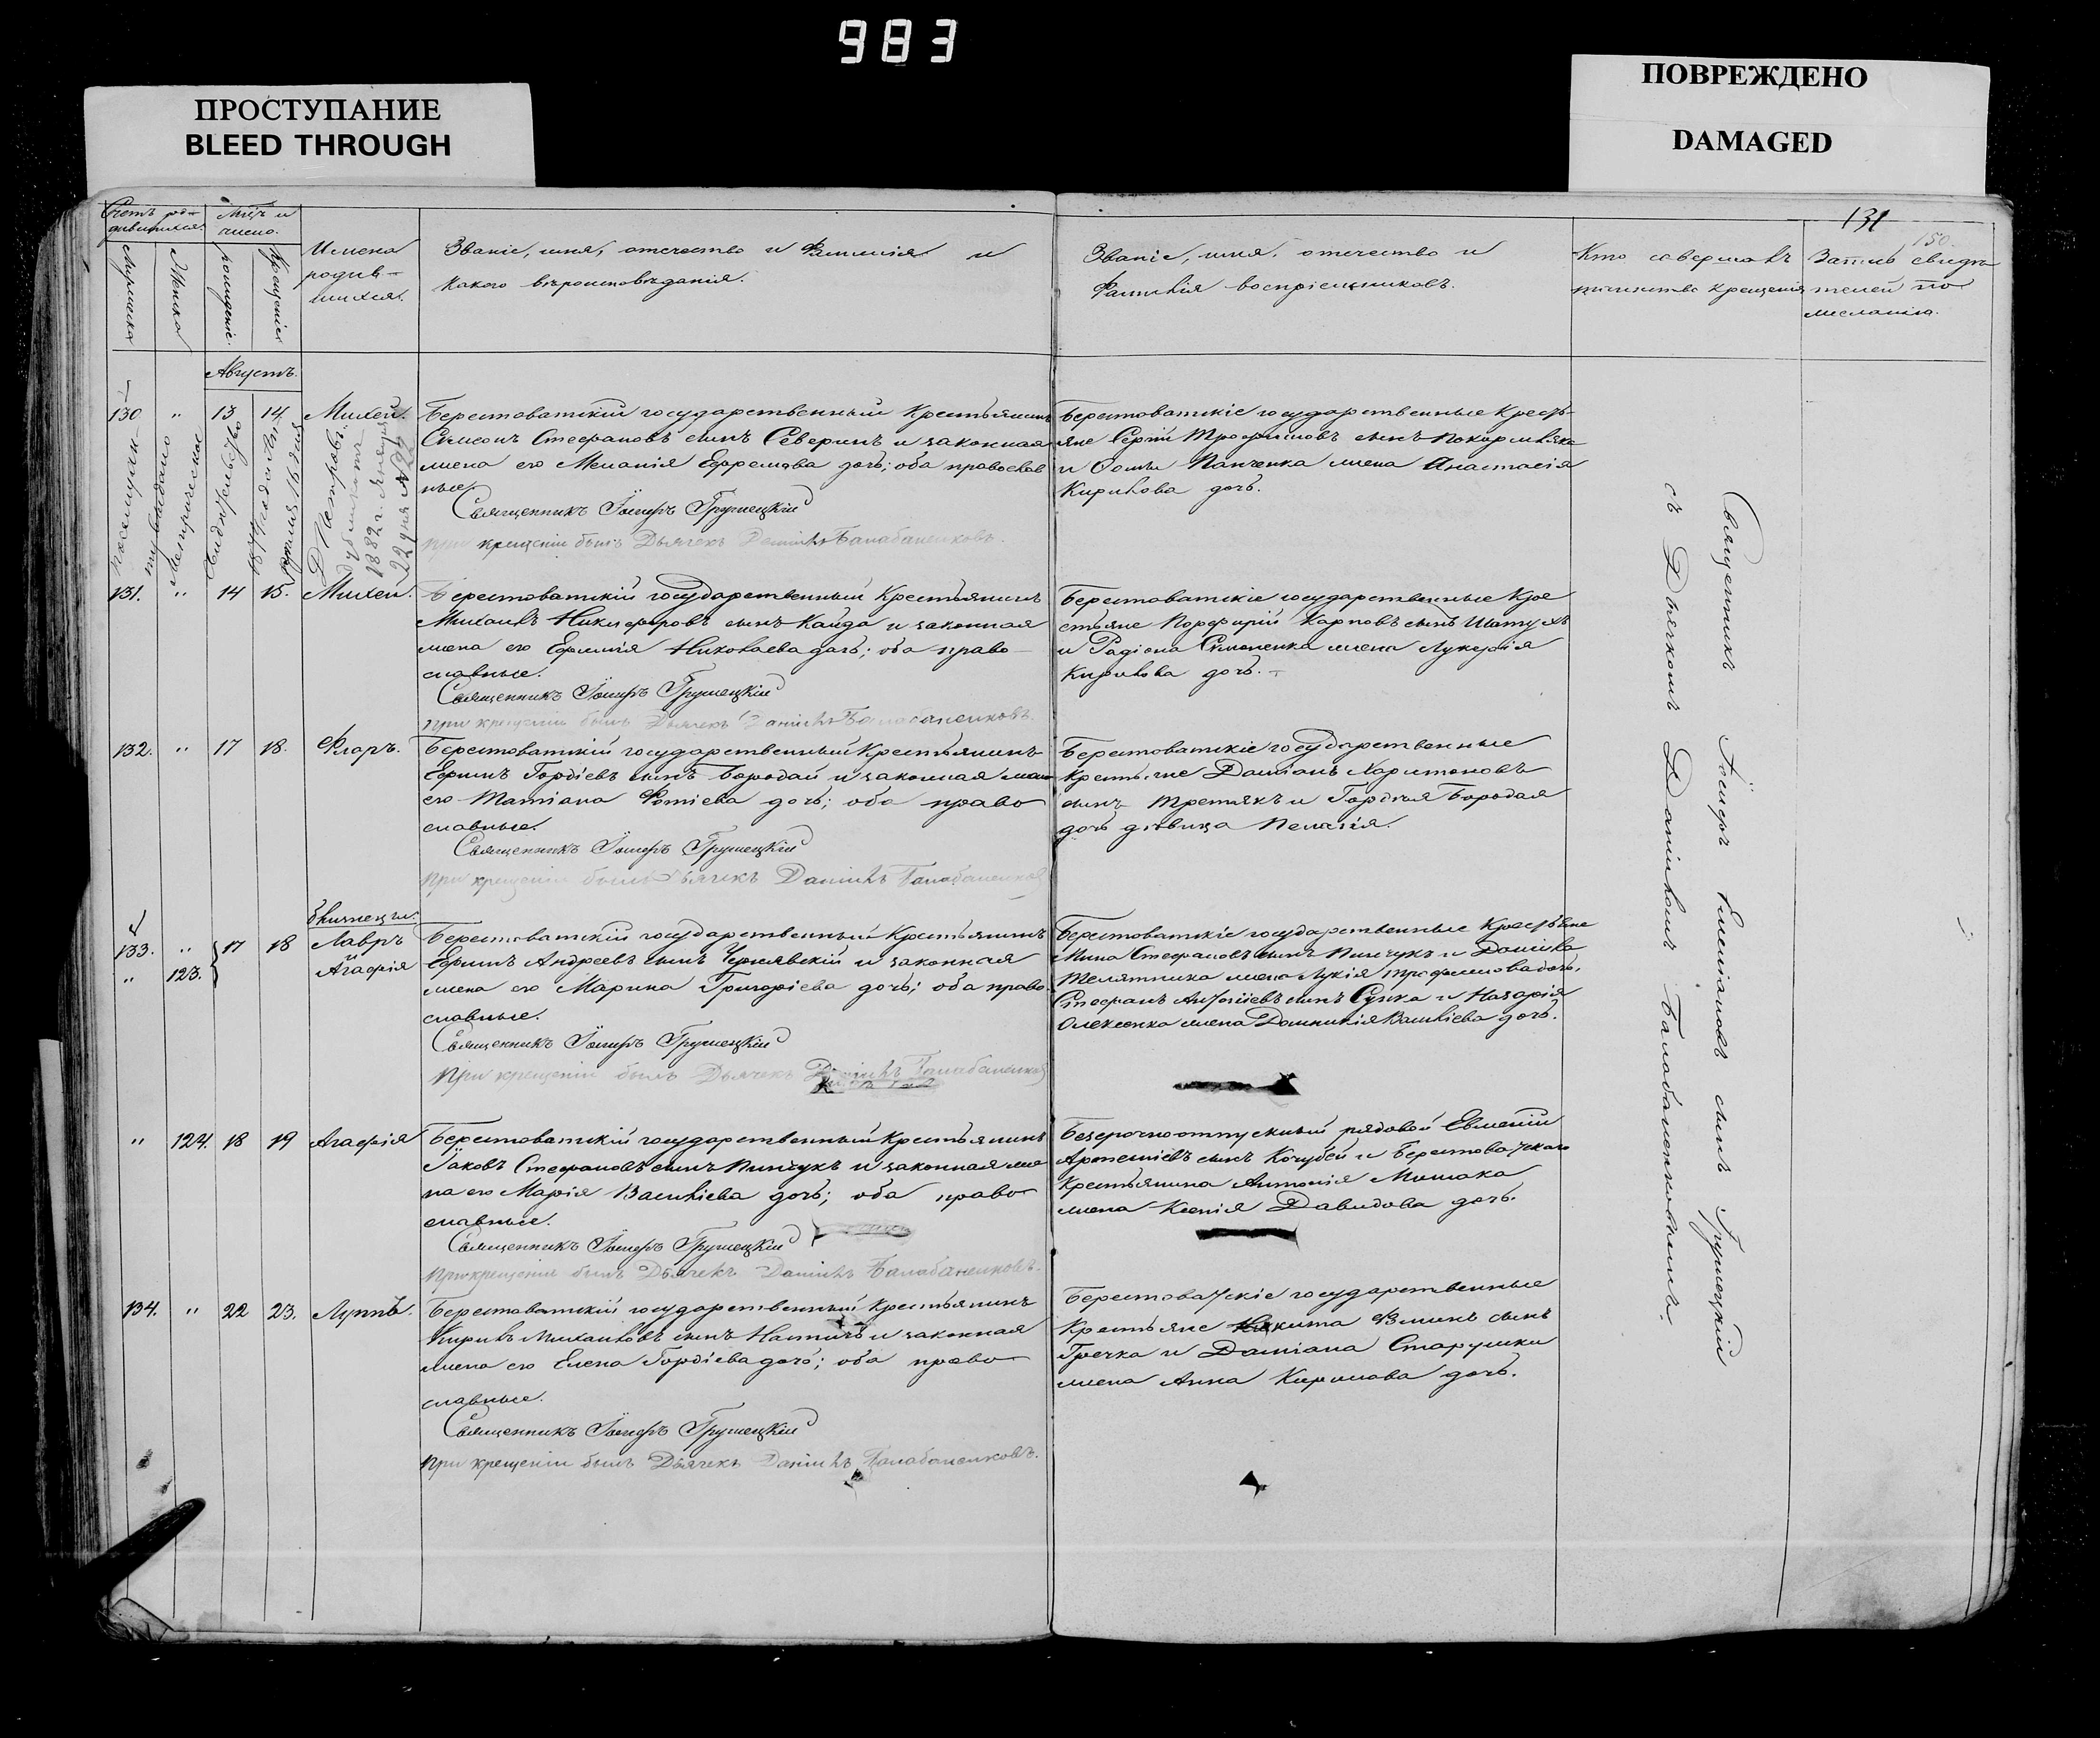 983
ПРОСТУПАНИЕ
BLEED THROUGH
ПОВРЕЖДЕНО
DAMAGED
131
150.
Счетъ ро-
дившихся.
Мужеска
Женска
Мѣс. и
число.
рожденіе.
Крещенія
Имена
родив-
шихся.
Званіе, имя, отечество и Фамилія и
какого вѣроисповѣданія.
Званіе, имя, отечество и
Фамилія воспріемниковъ.
Кто совершалъ
таинство крещенія
свидѣ-
телей по
желанію.
Августъ.
130 " 13 14. Михей.
Берестоватскій государственный Крестьянинъ
Симеонъ Стефановъ сынъ Северинъ и законная
жена его Меланія Ефремова дочь; оба православ
ные.
Священникъ Іосифъ Грушецкій
при крещеніи былъ Дьячекъ Даніилъ Балабаненковъ.
Берестоватскіе государственные Кресть-
яне Сергій Трофимовъ сынъ
и Ѳомы Панченка жена Анастасія
Кирилова дочь.
метрическое
1882 а Января
22 дня №
131. " 14 15. Михей.
Берестоватскій государственный Крестьянинъ
Михаилъ Никифоровъ сынъ Кайда и законная
жена его Ефимія Николаева дочь; оба право-
славные.
Священникъ Іосифъ Грушецкій
при крещеніи былъ Дьячекъ Даніилъ Балабаненковъ.
Берестоватскіе государственные Кре
стьяне Порфирій Карповъ сынъ
и Радіона Симоненка жена Лукерія
Кирилова дочь.
132. " 17 18. Флоръ.
Берестоватскій государственный Крестьянинъ
Ефимъ Гордіевъ сынъ Бородай и законная жена
его Татіана Фотіева дочь; оба право
славные.
Священникъ Іосифъ Грушецкій
при крещеніи былъ Дьячекъ Даніилъ Балабаненковъ
Берестоватскіе государственные
Крестьяне Даміанъ Харитоновъ
сынъ Третьякъ и Гордія Бородая
дочь дѣвица Пелагія.
близнецы.
133. " 17 18 Лавръ
и
" 123. Агафія
Берестоватскій государственный Крестьянинъ
Ефимъ Андреевъ сынъ Чернявскій и законная
жена его Марина Григоріева дочь; оба право
славные.
Священникъ Іосифъ Грушецкій
При крещеніи былъ Дьячекъ Даніилъ Балабаненковъ
Берестоватскіе государственные Крестьяне
Мина Стефановъ сынъ Пинчукъ и Даніила
Телятника жена Лукія Трофимова дочь.
Стефанъ сынъ Сучка и Назарія
Олексенка жена Домникія Василіева дочь.
" 124. 18 19 Агафія
Берестоватскій государственный Крестьянинъ
Іаковъ Стефановъ сынъ Пинчукъ и законная же
на его Марія Василіева дочь; оба право
славные.
Священникъ Іосифъ Грушецкій
При крещеніи былъ Дьячекъ Даніилъ Балабаненковъ.
Безсрочноотпускный рядовой Евменій
Артеміевъ сынъ Кочубей и Берестоватскаго
Крестьянина Антонія Мошака
жена Ксенія Давидова дочь.
134. " 22 23. Луппъ.
Берестоватскій государственный Крестьянинъ
Кирилъ Михаиловъ сынъ и законная
жена его Елена Гордіева дочь; оба право
славные.
Священникъ Іосифъ Грушецкій
при крещеніи былъ Дьячекъ Даніилъ Балабаненковъ.
Берестоватскіе государственные
Крестьяне Никита сынъ
Гречка и Даміана Старушки
жена Анна Кирилова дочь.
Священникъ Іосифъ Емеліановъ сынъ Грушецкій
съ Дьячкомъ Даніиломъ Балабаненковымъ.